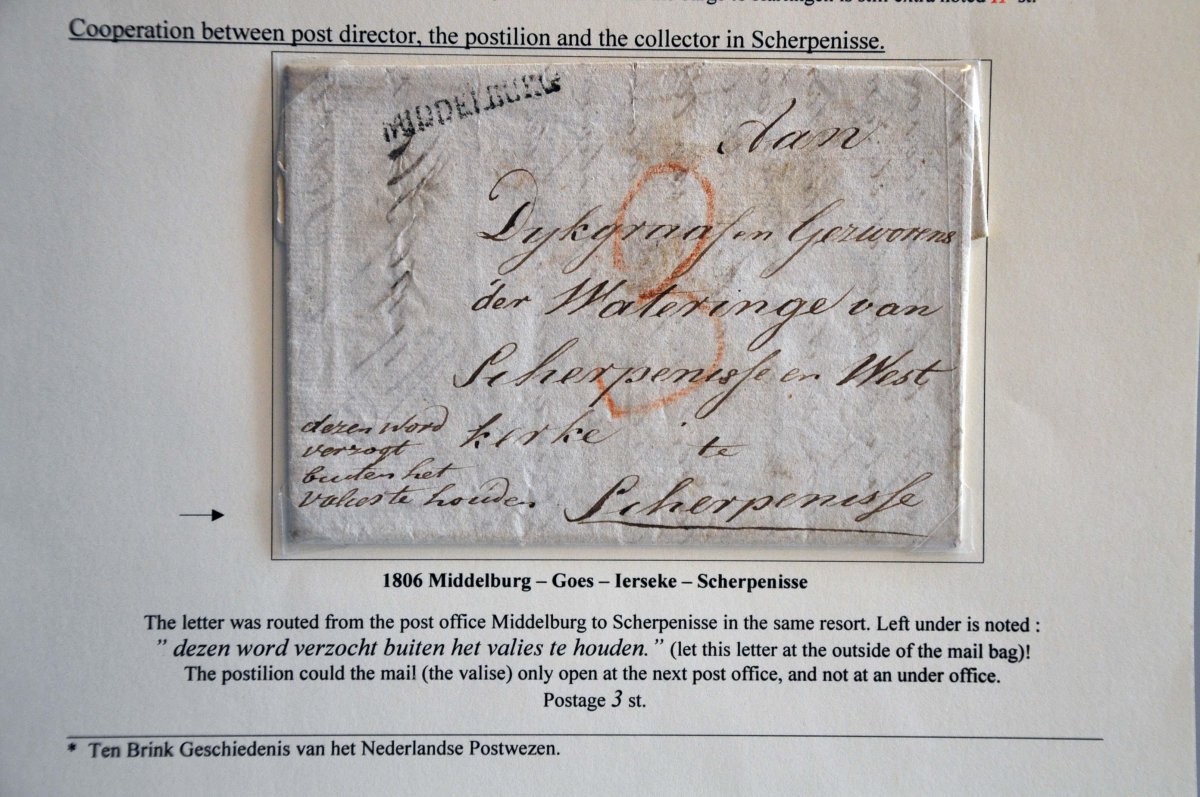 is still extra noted st.
Cooperation between post director, the postilion and the collector in Scherpenisse.
MIDDELBURG
Aan
Dykgraaf en Gezworens
der Wateringe van
Scherpenisse en West
kerke te
Scherpenisse
dezen word
verzogt
buiten het
valies te houden
3
1806 Middelburg – Goes – Ierseke – Scherpenisse
The letter was routed from the post office Middelburg to Scherpenisse in the same resort. Left under is noted :
” dezen word verzocht buiten het valies te houden. ” (let this letter at the outside of the mail bag)!
The postilion could the mail (the valise) only open at the next post office, and not at an under office.
Postage 3 st.
* Ten Brink Geschiedenis van het Nederlandse Postwezen.